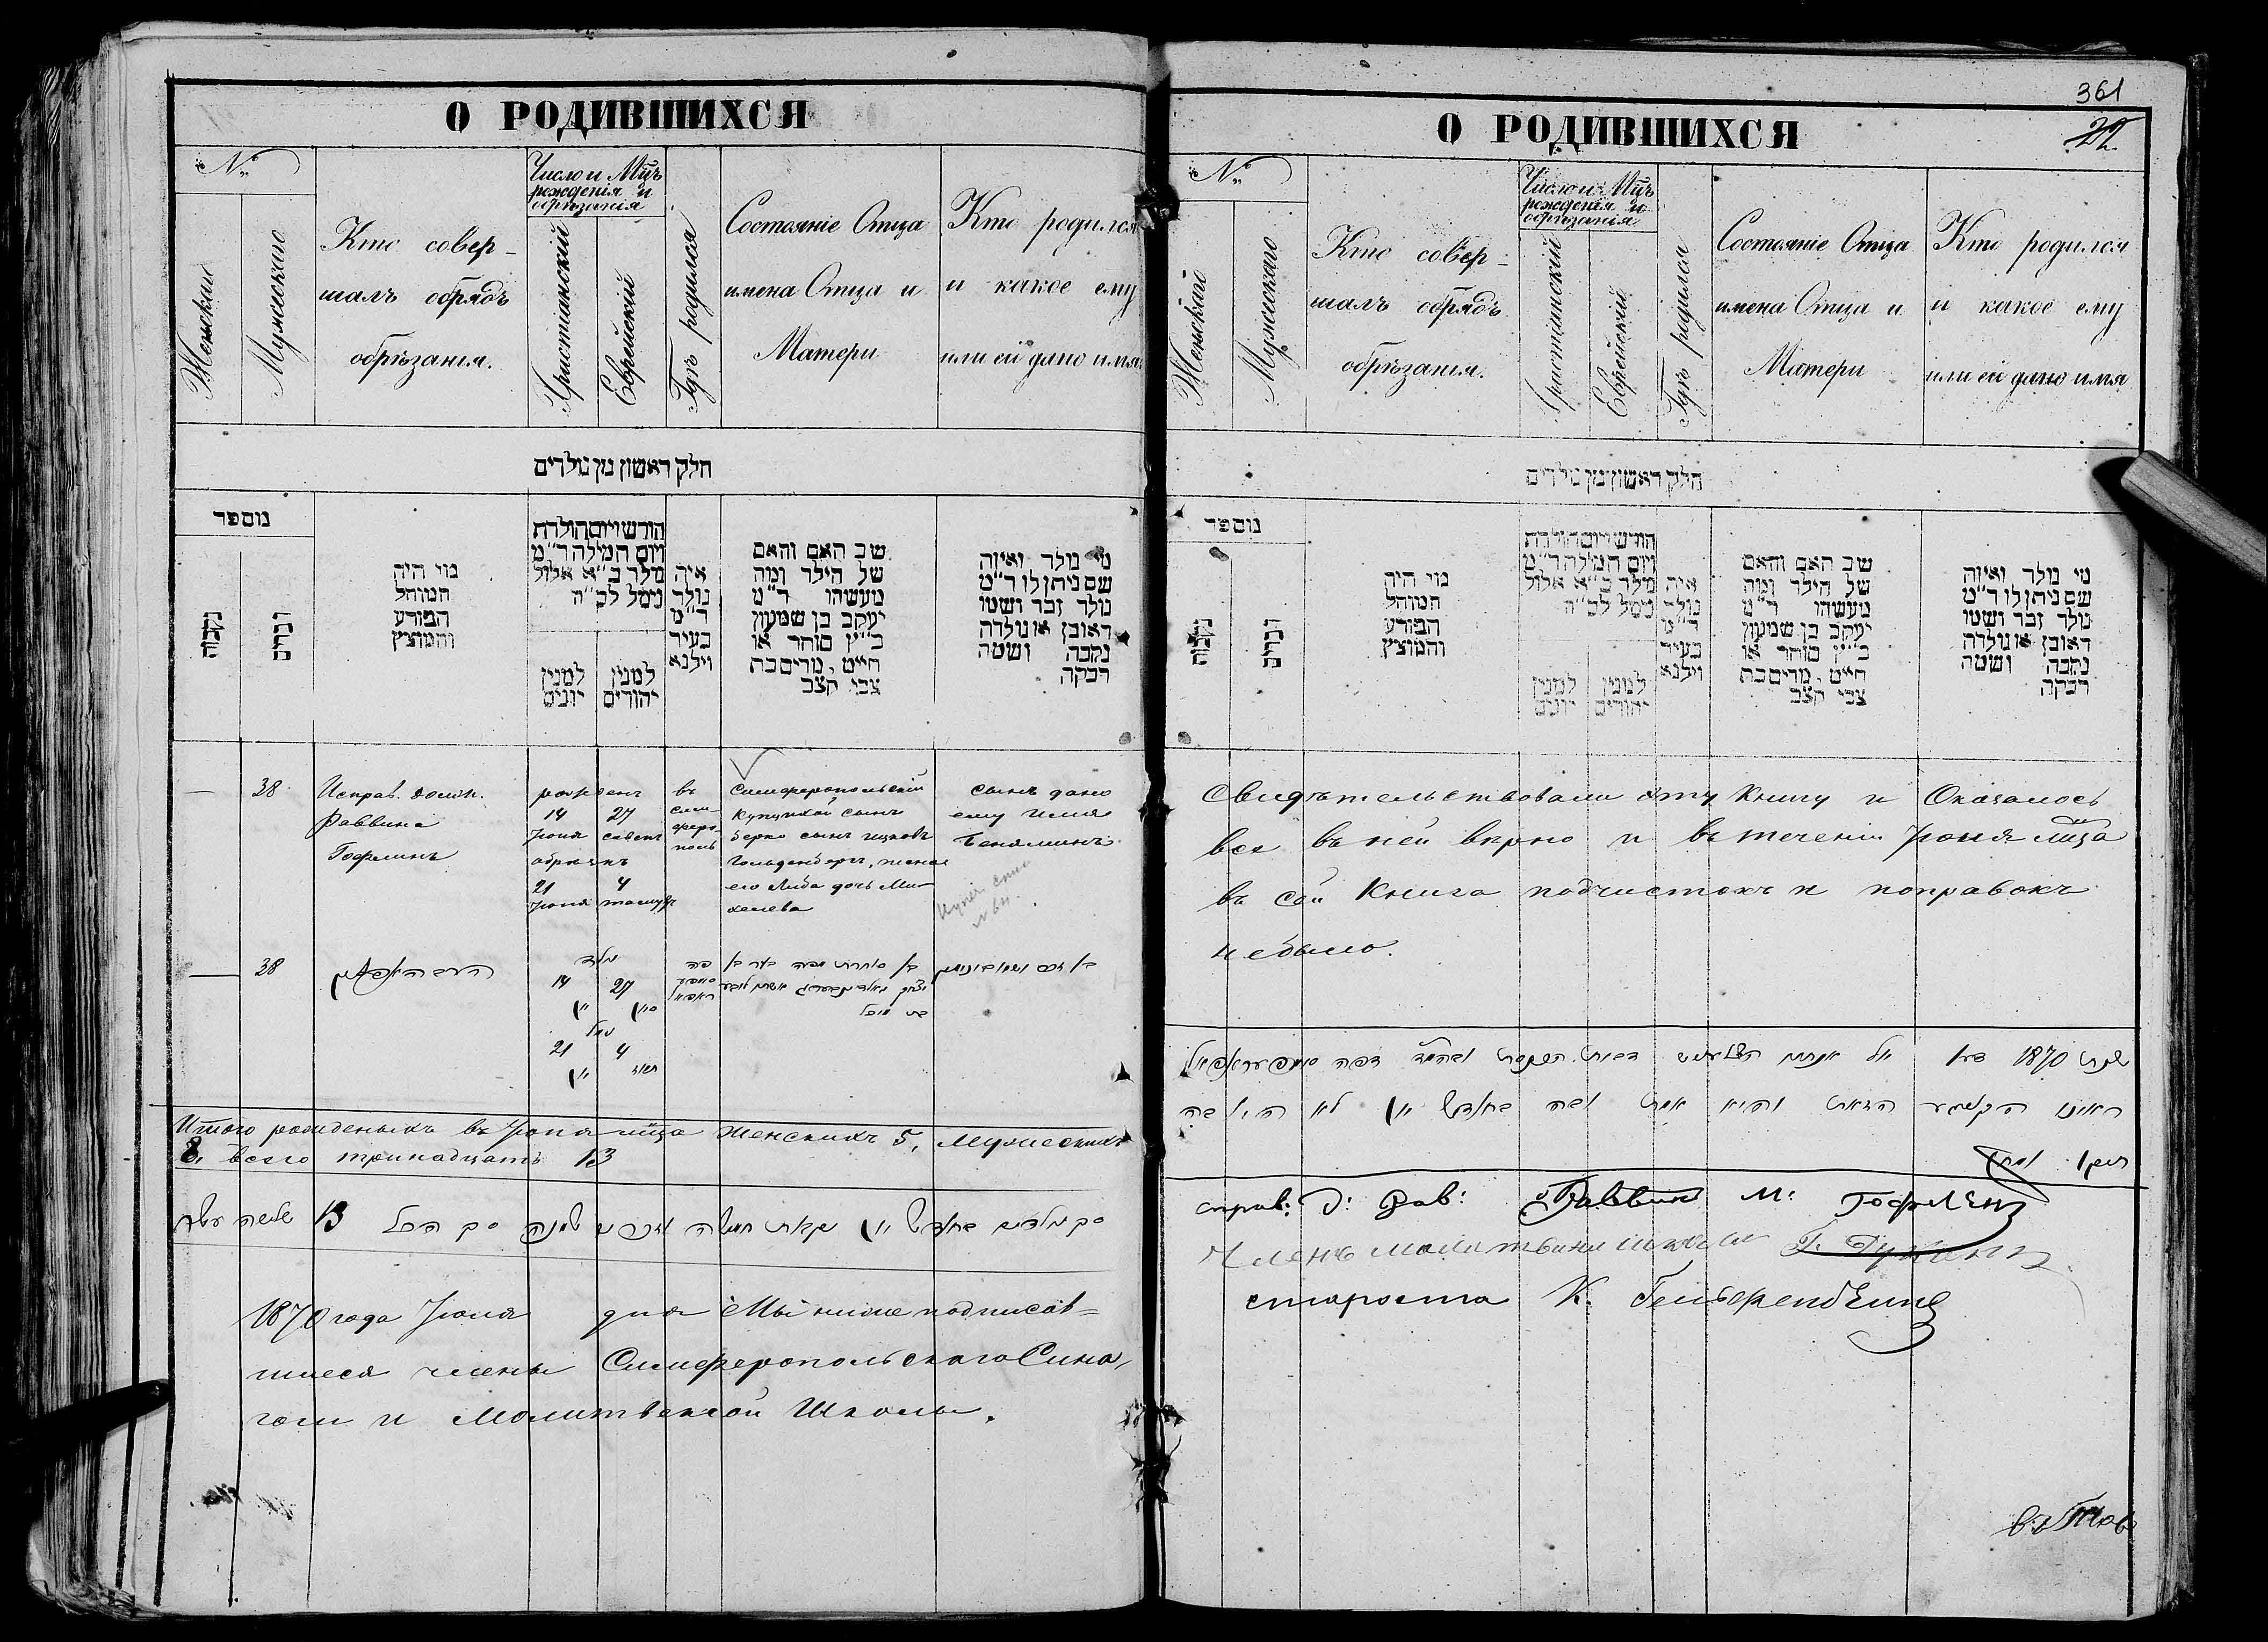 О РОДИВШИХСЯ
№
Женскаго
Мужескаго
Кто совер-
шалъ обрядъ
обрѣзанія.
Число и Мѣцъ
рожденія и
обрѣзанія
Христіанскій
Еврейскій
Гдѣ родился
Состояніе Отца
имена Отца и
Матери
Кто родился
и какое ему
или ей дано имя
חלק ראשון מן נולדים
מספר
נקבות
זכרים
מי היה
המוהל
הפורע
והמוצץ
חודש ויום הולדת
ויום המילה ד"מ
נולד ב"א אלול
נימל לב"ה
למנין
יונים
למנין
יהודים
איה
נולד
ד"מ
בעיר
וילנא
שב האם והאם
של הילד ומה
מעשהו ד"מ
יעקב בן שמעון
כ"ץ סוחר או
חייט, מרים בת
צבי קצב
מי נולד ואיזה
שם ניתן לו ד"מ
נולד זכר ושמו
ראובן או נולדה
נקבה ושמה
רבקה
— 38
Исправ. должн.
Раввина
Гофманъ
рожденъ
14 27
Іюня сивенъ
обрѣзанъ
21 4
Іюня тамузъ
въ
сим-
феро-
поль
Симферопольскій
купческій сынъ
Берко сынъ Ицковъ
Гольденбергъ, жена
его Либа дочь Ми-
хелева
сынъ дано
ему имя
Беняминъ
— 38
נולד
14 27
יוני סיון
נימול
21 4
יוני תמוז
פה
Итого рожденныхъ въ Іюня мѣца женскихъ 5, мужескихъ
8, всего тринадцать 13
סך נולדים בחודש יוני נקבות חמשה זכרים שמנה סך הכל 13 שלשה עשר
1870 года Іюня дня Мы ниже подписав-
шіеся члены Симферопольскаго Сина-
гоги и Молитвенной Школы.
361
22
О РОДИВШИХСЯ
№
Женскаго
Мужескаго
Кто совер-
шалъ обрядъ
обрѣзанія.
Число и Мѣцъ
рожденія и
обрѣзанія
Христіанскій
Еврейскій
Гдѣ родился
Состояніе Отца
имена Отца и
Матери
Кто родился
и какое ему
или ей дано имя
חלק ראשון מן נולדים
מספר
נקבות
זכרים
מי היה
המוהל
הפורע
והמוצץ
חודש ויום הולדת
ויום המילה ד"מ
נולד ב"א אלול
נימל לב"ה
למנין
יונים
למנין
יהודים
איה
נולד
ד"מ
בעיר
וילנא
שב האם והאם
של הילד ומה
מעשהו ד"מ
יעקב בן שמעון
כ"ץ סוחר או
חייט, מרים בת
צבי קצב
מי נולד ואיזה
שם ניתן לו ד"מ
נולד זכר ושמו
ראובן או נולדה
נקבה ושמה
רבקה
Свидѣтельствовали эту книгу и Оказалось
все въ ней вѣрно и въ теченіи Іюня мѣца
въ сей книга подчистокъ и поправокъ
небыло.
שנת 1870
справ: д: Рав: Раввин М: Гофман
Членъ молитвенной школы
староста К.